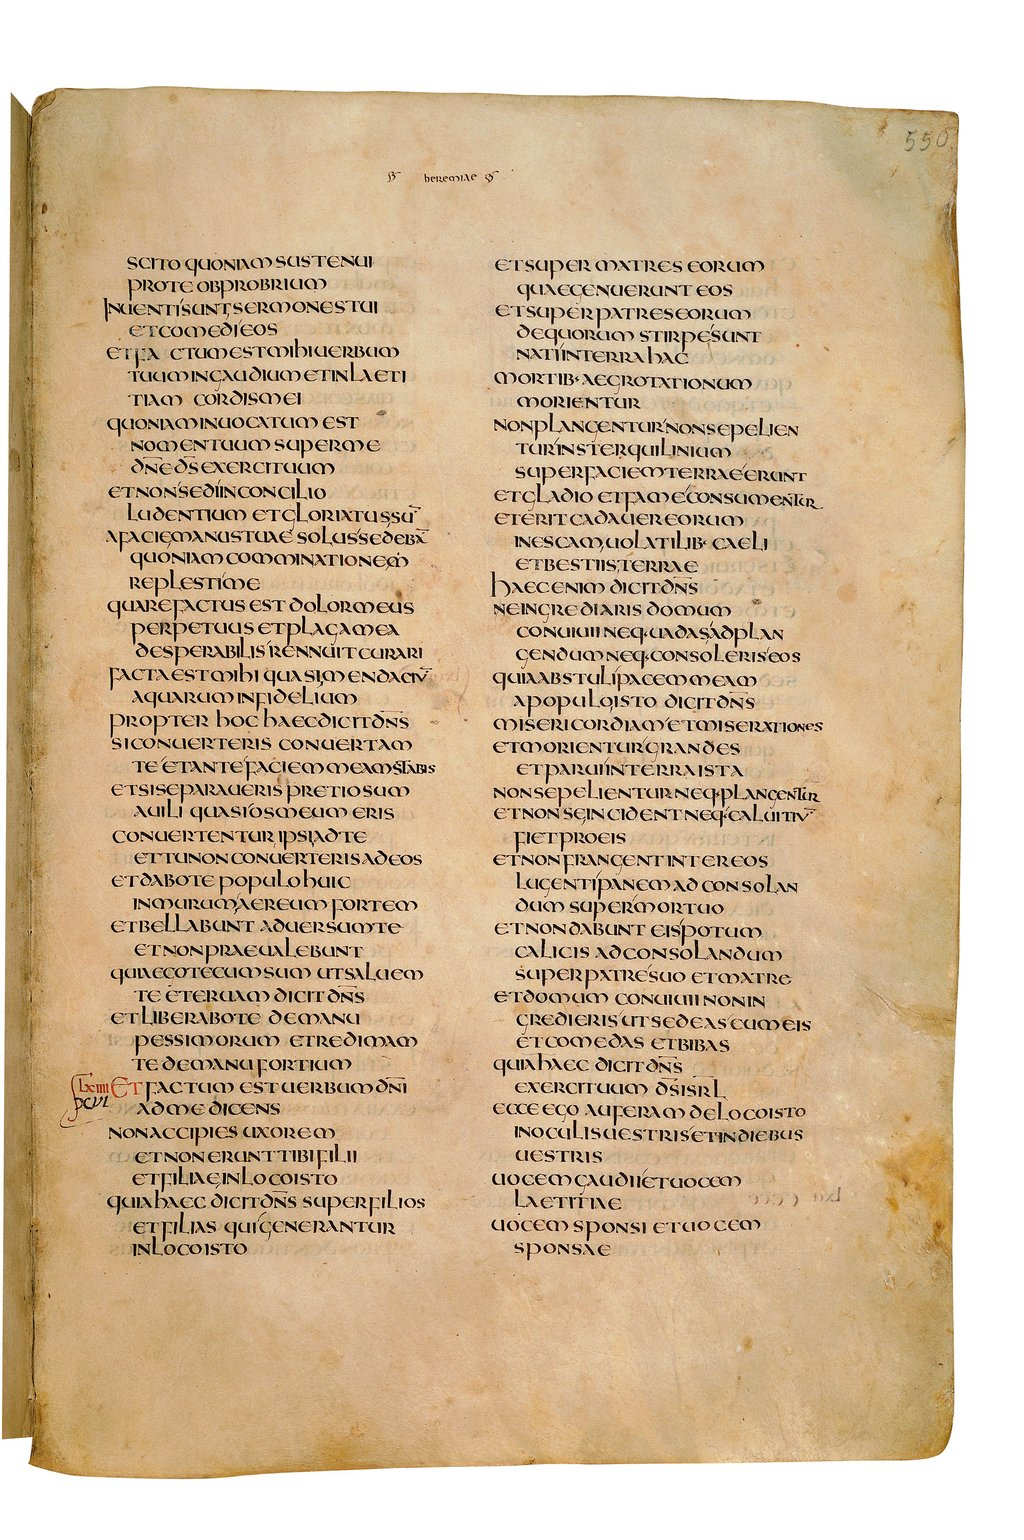 550
heremiae
SCITO QUONIAM SUSTENUI
PRO TE OBPROBRIUM
INUENTI SUNT SERMONES TUI
ET COMEDI EOS
ET FACTUM EST MIHI UERBUM
TUUM IN GAUDIUM ET IN LAETI
TIAM CORDIS MEI
QUONIAM INUOCATUM EST
NOMEN TUUM SUPER ME
DN̄E DS̄ EXERCITUUM
ET NON SEDI IN CONCILIO
LUDENTIUM ET GLORIATUS SŪ
A FACIE MANUS TUAE SOLUS SEDEBĀ
QUONIAM COMMINATIONEM
REPLESTI ME
QUARE FACTUS EST DOLOR MEUS
PERPETUUS ET PLAGA MEA
DESPERABILIS RENNUIT CURARI
FACTA EST MIHI QUASI MENDACIŪ
AQUARUM INFIDELIUM
PROPTER HOC HAEC DICIT DN̄S
SI CONUERTERIS CONUERTAM
TE ET ANTE FACIEM MEAM STABIS
ET SI SEPARAUERIS PRETIOSUM
A UILI QUASI OS MEUM ERIS
CONUERTENTUR IPSI AD TE
ET TU NON CONUERTERIS AD EOS
ET DABO TE POPULO HUIC
IN MURUM AEREUM FORTEM
ET BELLABUNT ADUERSUM TE
ET NON PRAEUALEBUNT
QUIA EGO TECUM SUM UT SALUEM
TE ET ERUAM DICIT DN̄S
ET LIBERABO TE DE MANU
PESSIMORUM ET REDIMAM
TE DE MANU FORTIUM
lxiiii ET FACTUM EST UERBUM DN̄I
xcvi AD ME DICENS
NON ACCIPIES UXOREM
ET NON ERUNT TIBI FILII
ET FILIAE IN LOCO ISTO
QUIA HAEC DICIT DN̄S SUPER FILIOS
ET FILIAS QUI GENERANTUR
IN LOCO ISTO
ET SUPER MATRES EORUM
QUAE GENUERUNT EOS
ET SUPER PATRES EORUM
DE QUORUM STIRPE SUNT
NATI IN TERRA HAC
MORTIB· AEGROTATIONUM
MORIENTUR
NON PLANGENTUR NON SEPELIEN
TUR IN STERQUILINIUM
SUPER FACIEM TERRAE ERUNT
ET GLADIO ET FAME CONSUMENTUR
ET ERIT CADAUER EORUM
IN ESCAM UOLATILIB· CAELI
ET BESTIIS TERRAE
HAEC ENIM DICIT DN̄S
NE INGREDIARIS DOMUM
CONUIUII NEQ· UADAS AD PLAN
GENDUM NEQ· CONSOLERIS EOS
QUIA ABSTULI PACEM MEAM
A POPULO ISTO DICIT DN̄S
MISERICORDIAM ET MISERATIONES
ET MORIENTUR GRANDES
ET PARUI IN TERRA ISTA
NON SEPELIENTUR NEQ· PLANGENTUR
ET NON SE INCIDENT NEQ· CALUITIŪ
FIET PRO EIS
ET NON FRANGENT INTER EOS
LUGENTI PANEM AD CONSOLAN
DUM SUPER MORTUO
ET NON DABUNT EIS POTUM
CALICIS AD CONSOLANDUM
SUPER PATRE SUO ET MATRE
ET DOMUM CONUIUII NON IN
GREDIERIS UT SEDEAS CUM EIS
ET COMEDAS ET BIBAS
QUIA HAEC DICIT DN̄S
EXERCITUUM DS̄ ISRL̄
ECCE EGO AUFERAM DE LOCO ISTO
IN OCULIS UESTRIS ET IN DIEBUS
UESTRIS
UOCEM GAUDII ET UOCEM
LAETITIAE
UOCEM SPONSI ET UOCEM
SPONSAE